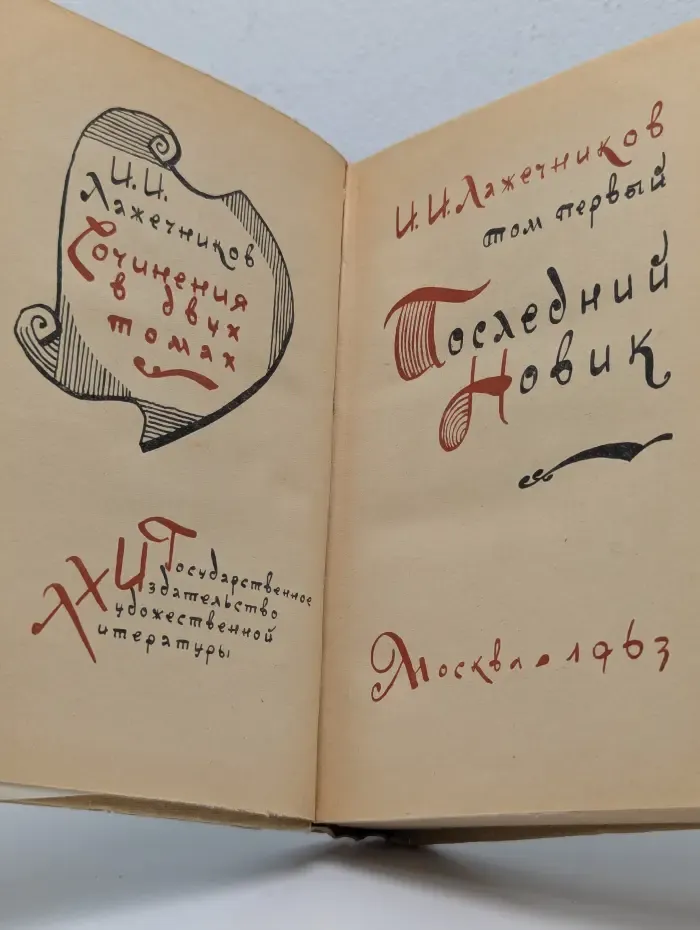 И. И.
Лажечников
Сочинения
в двух
томах
Государственное
Издательство
Художественной
Литературы
И. И. Лажечников
том первый
Последний
Новик
Москва • 1963